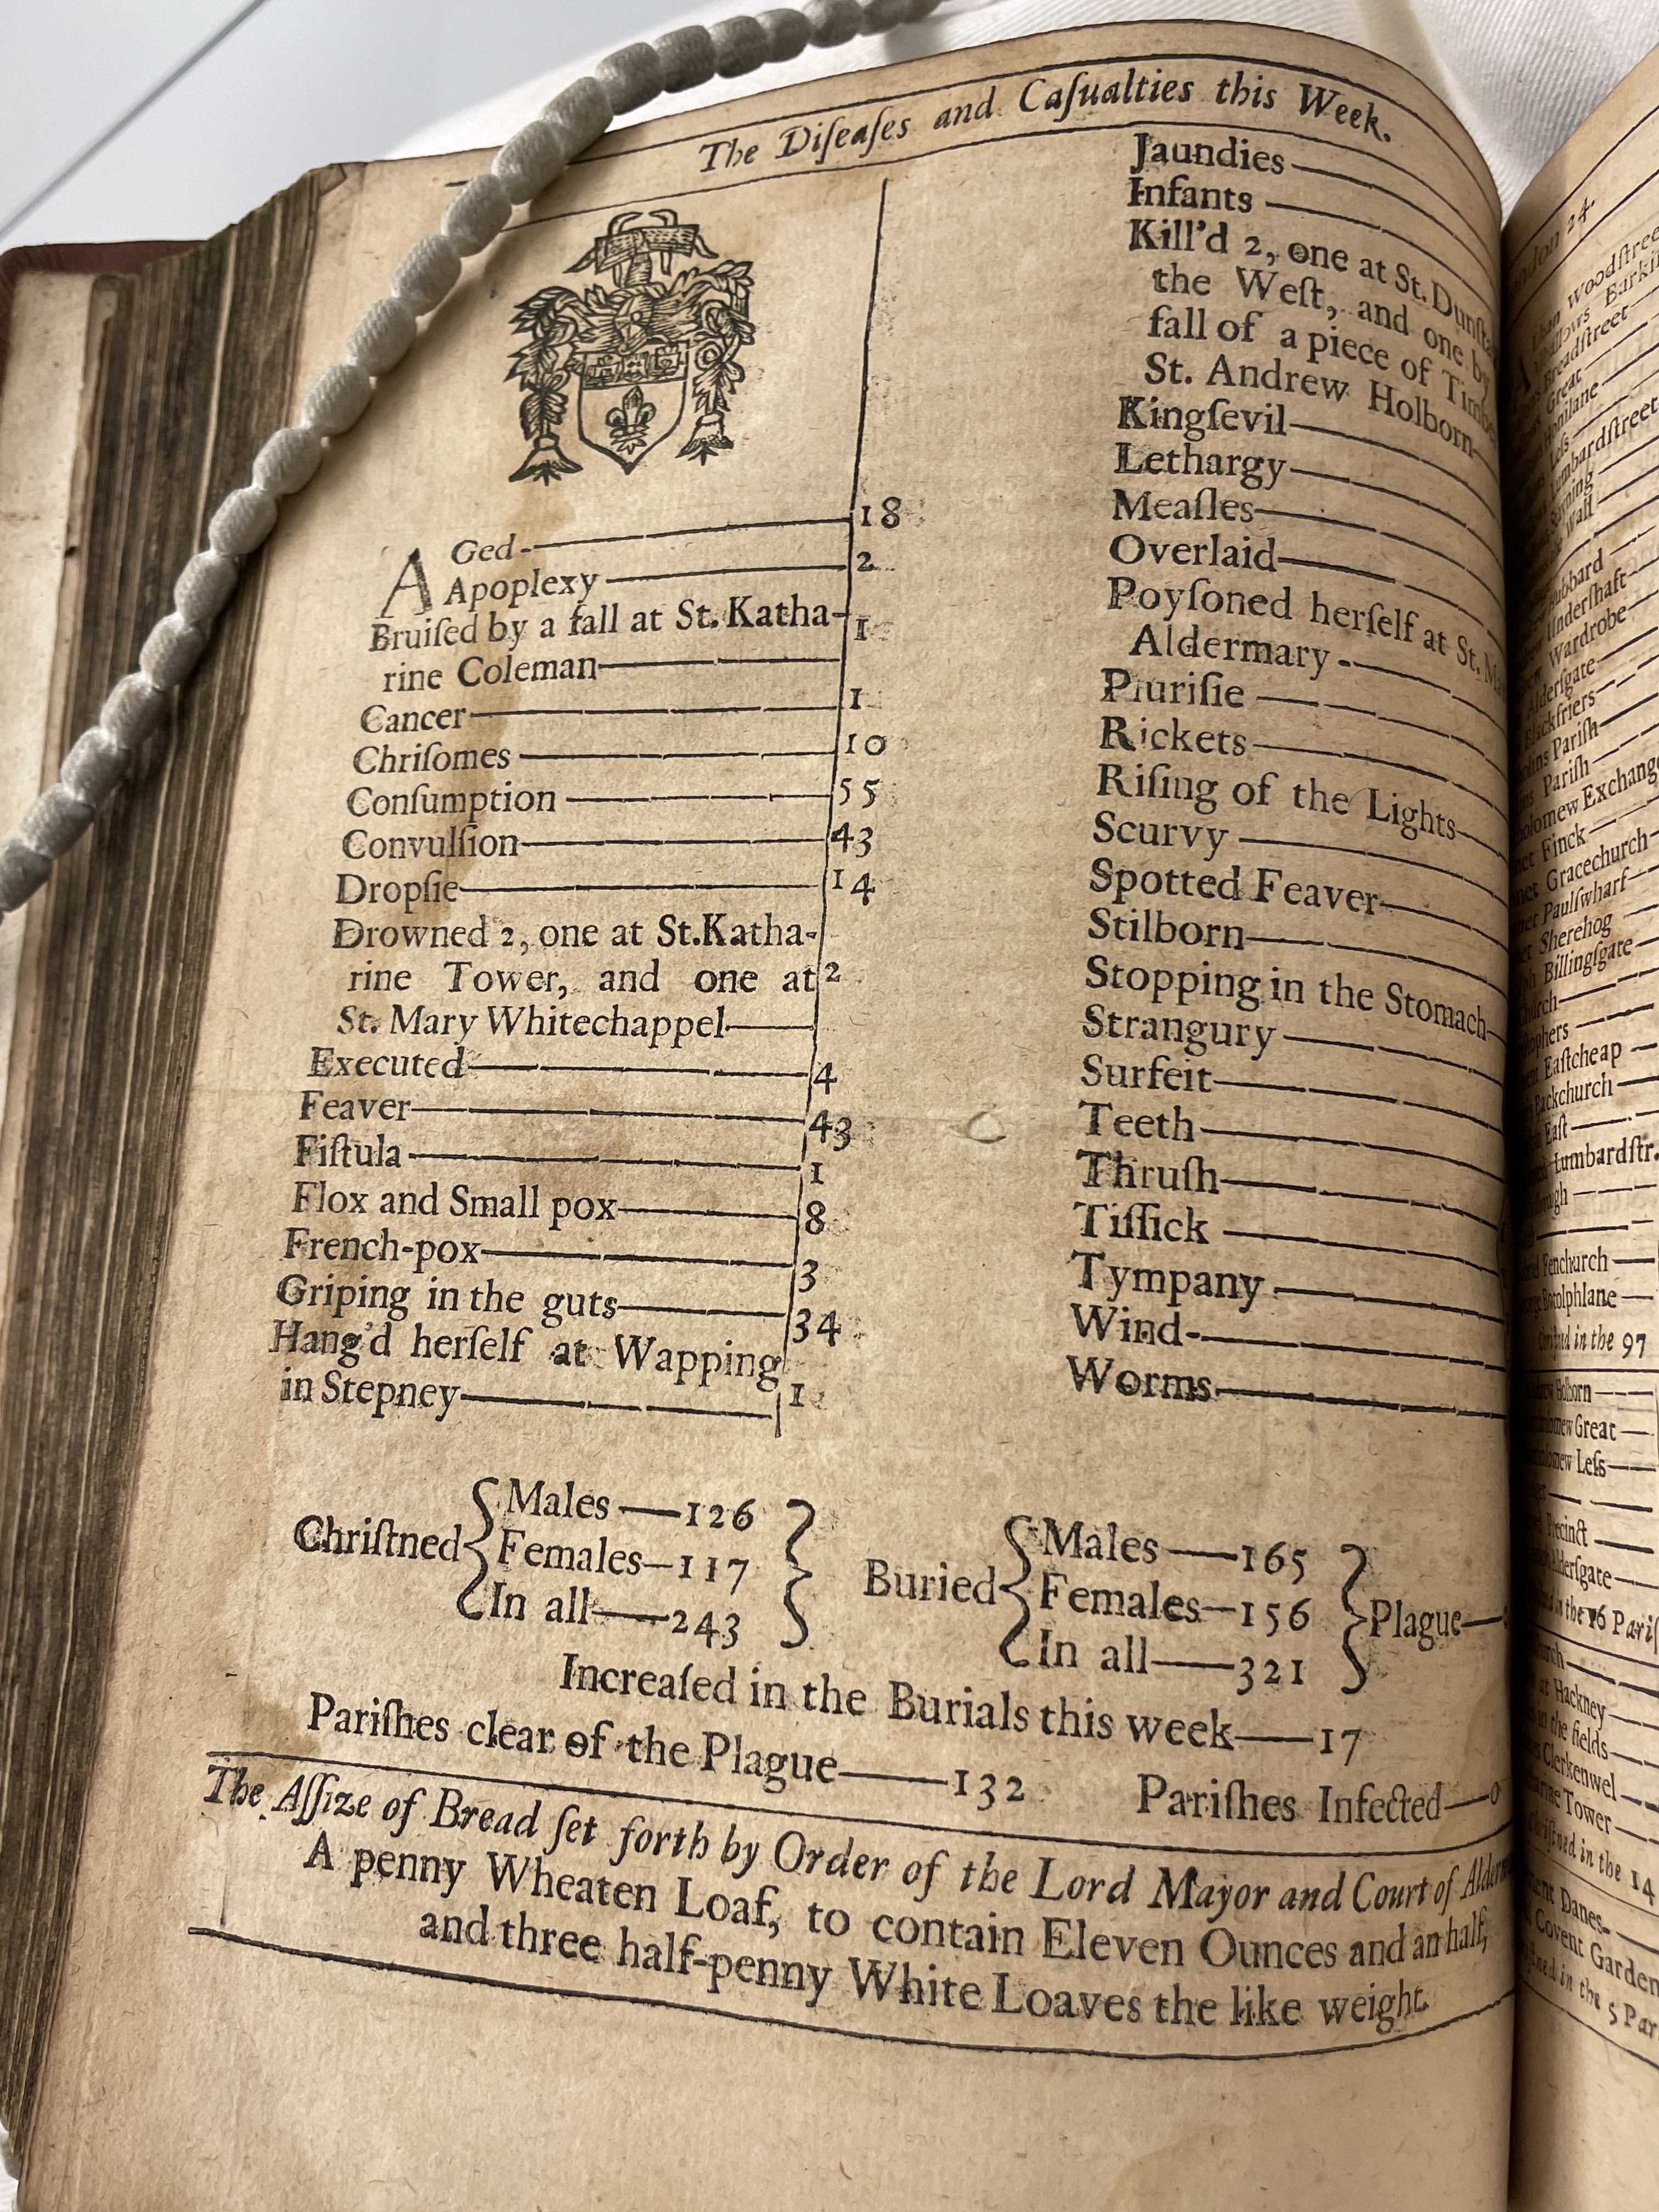 The Diſeaſes and Caſualties this Week.
AGed 18
Apoplexy 2
Bruiſed by a fall at St. Katha-
rine Coleman 1
Cancer 1
Chriſomes 10
Conſumption 55
Convulſion 43
Dropſie 14
Drowned 2, one at St. Katha-
rine Tower, and one at 2
St. Mary Whitechappel
Executed 4
Feaver 43
Fiſtula 1
Flox and Small pox 8
French-pox 3
Griping in the guts 34
Hang'd herſelf at Wapping
in Stepney 1
Jaundies
Infants
Kill'd 2, one at St. Dunſta
the Weſt, and one by
fall of a piece of Timbe
St. Andrew Holborn
Kingſevil
Lethargy
Meaſles
Overlaid
Poyſoned herſelf at St. M
Aldermary
Pluriſie
Rickets
Riſing of the Lights
Scurvy
Spotted Feaver
Stilborn
Stopping in the Stomach
Strangury
Surfeit
Teeth
Thruſh
Tiſſick
Tympany
Wind
Worms
Chriſtned
Males—126
Females—117
In all—243
Buried
Males—165
Females—156
In all—321
Plague—0
Increaſed in the Burials this week—17
Pariſhes clear of the Plague—132 Pariſhes Infected—0
The Aſſize of Bread ſet forth by Order of the Lord Mayor and Court of Alder
A penny Wheaten Loaf, to contain Eleven Ounces and an half,
and three half-penny White Loaves the like weight.
24.
Woodſtree
Barki
Breadſtreet
Great
Honilane
Leſs
Lumbardſtreet
Wall
Hubbard
Underſhaft
Wardrobe
Alderſgate
Blackfriers
Pariſh
Pariſh
Exchange
Finck
Gracechurch
Paulſwharf
Sherehog
Billingſgate
Eaſtcheap
Backchurch
Eaſt
Lumbardſtr.
Fenchurch
Botolphlane
in the 97
Holborn
Great
Leſs
Precinct
Alderſgate
in the 16 Pariſ
at Hackney
in the fields
Clerkenwel
Tower
in the 14
Danes
Covent Garden
in the 5 Par